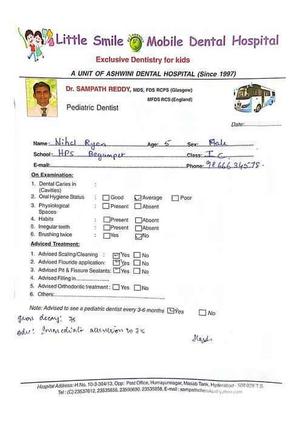 Little Smile Mobile Dental Hospital
Exclusive Dentistry for kids
A UNIT OF ASHWINI DENTAL HOSPITAL (Since 1997)
Dr. SAMPATH REDDY, MDS, FDS RCPS (Glasgow)
MFDS RCS (England)
Pediatric Dentist
Date:
Name: Nihel Ryan Age: 5 Sex: Male
School: HPS Begumpet Class: I C
E-mail: Phone:
On Examination:
1. Dental Caries in (Cavities)
2. Oral Hygiene Status Good Average Poor
3. Physiological Spaces Present Absent
4. Habits Present Absent
5. Irregular teeth Present Absent
6. Brushing twice Yes No
Advised Treatment:
1. Advised Scaling/Cleaning : Yes No
2. Advised Flouride application: Yes No
3. Advised Pit & Fissure Sealants: Yes No
4. Advised Filling in
5. Advised Orthodontic treatment : Yes No
6. Others:
Note: Advised to see a pediatric dentist every 3-6 months Yes No
decay:
Adv: Immediate attention to
Hospital Address: H.No. 10-3-304/13, Opp: Post Office, Humayunnagar, Masab Tank, Hyderabad
Tel : (C)